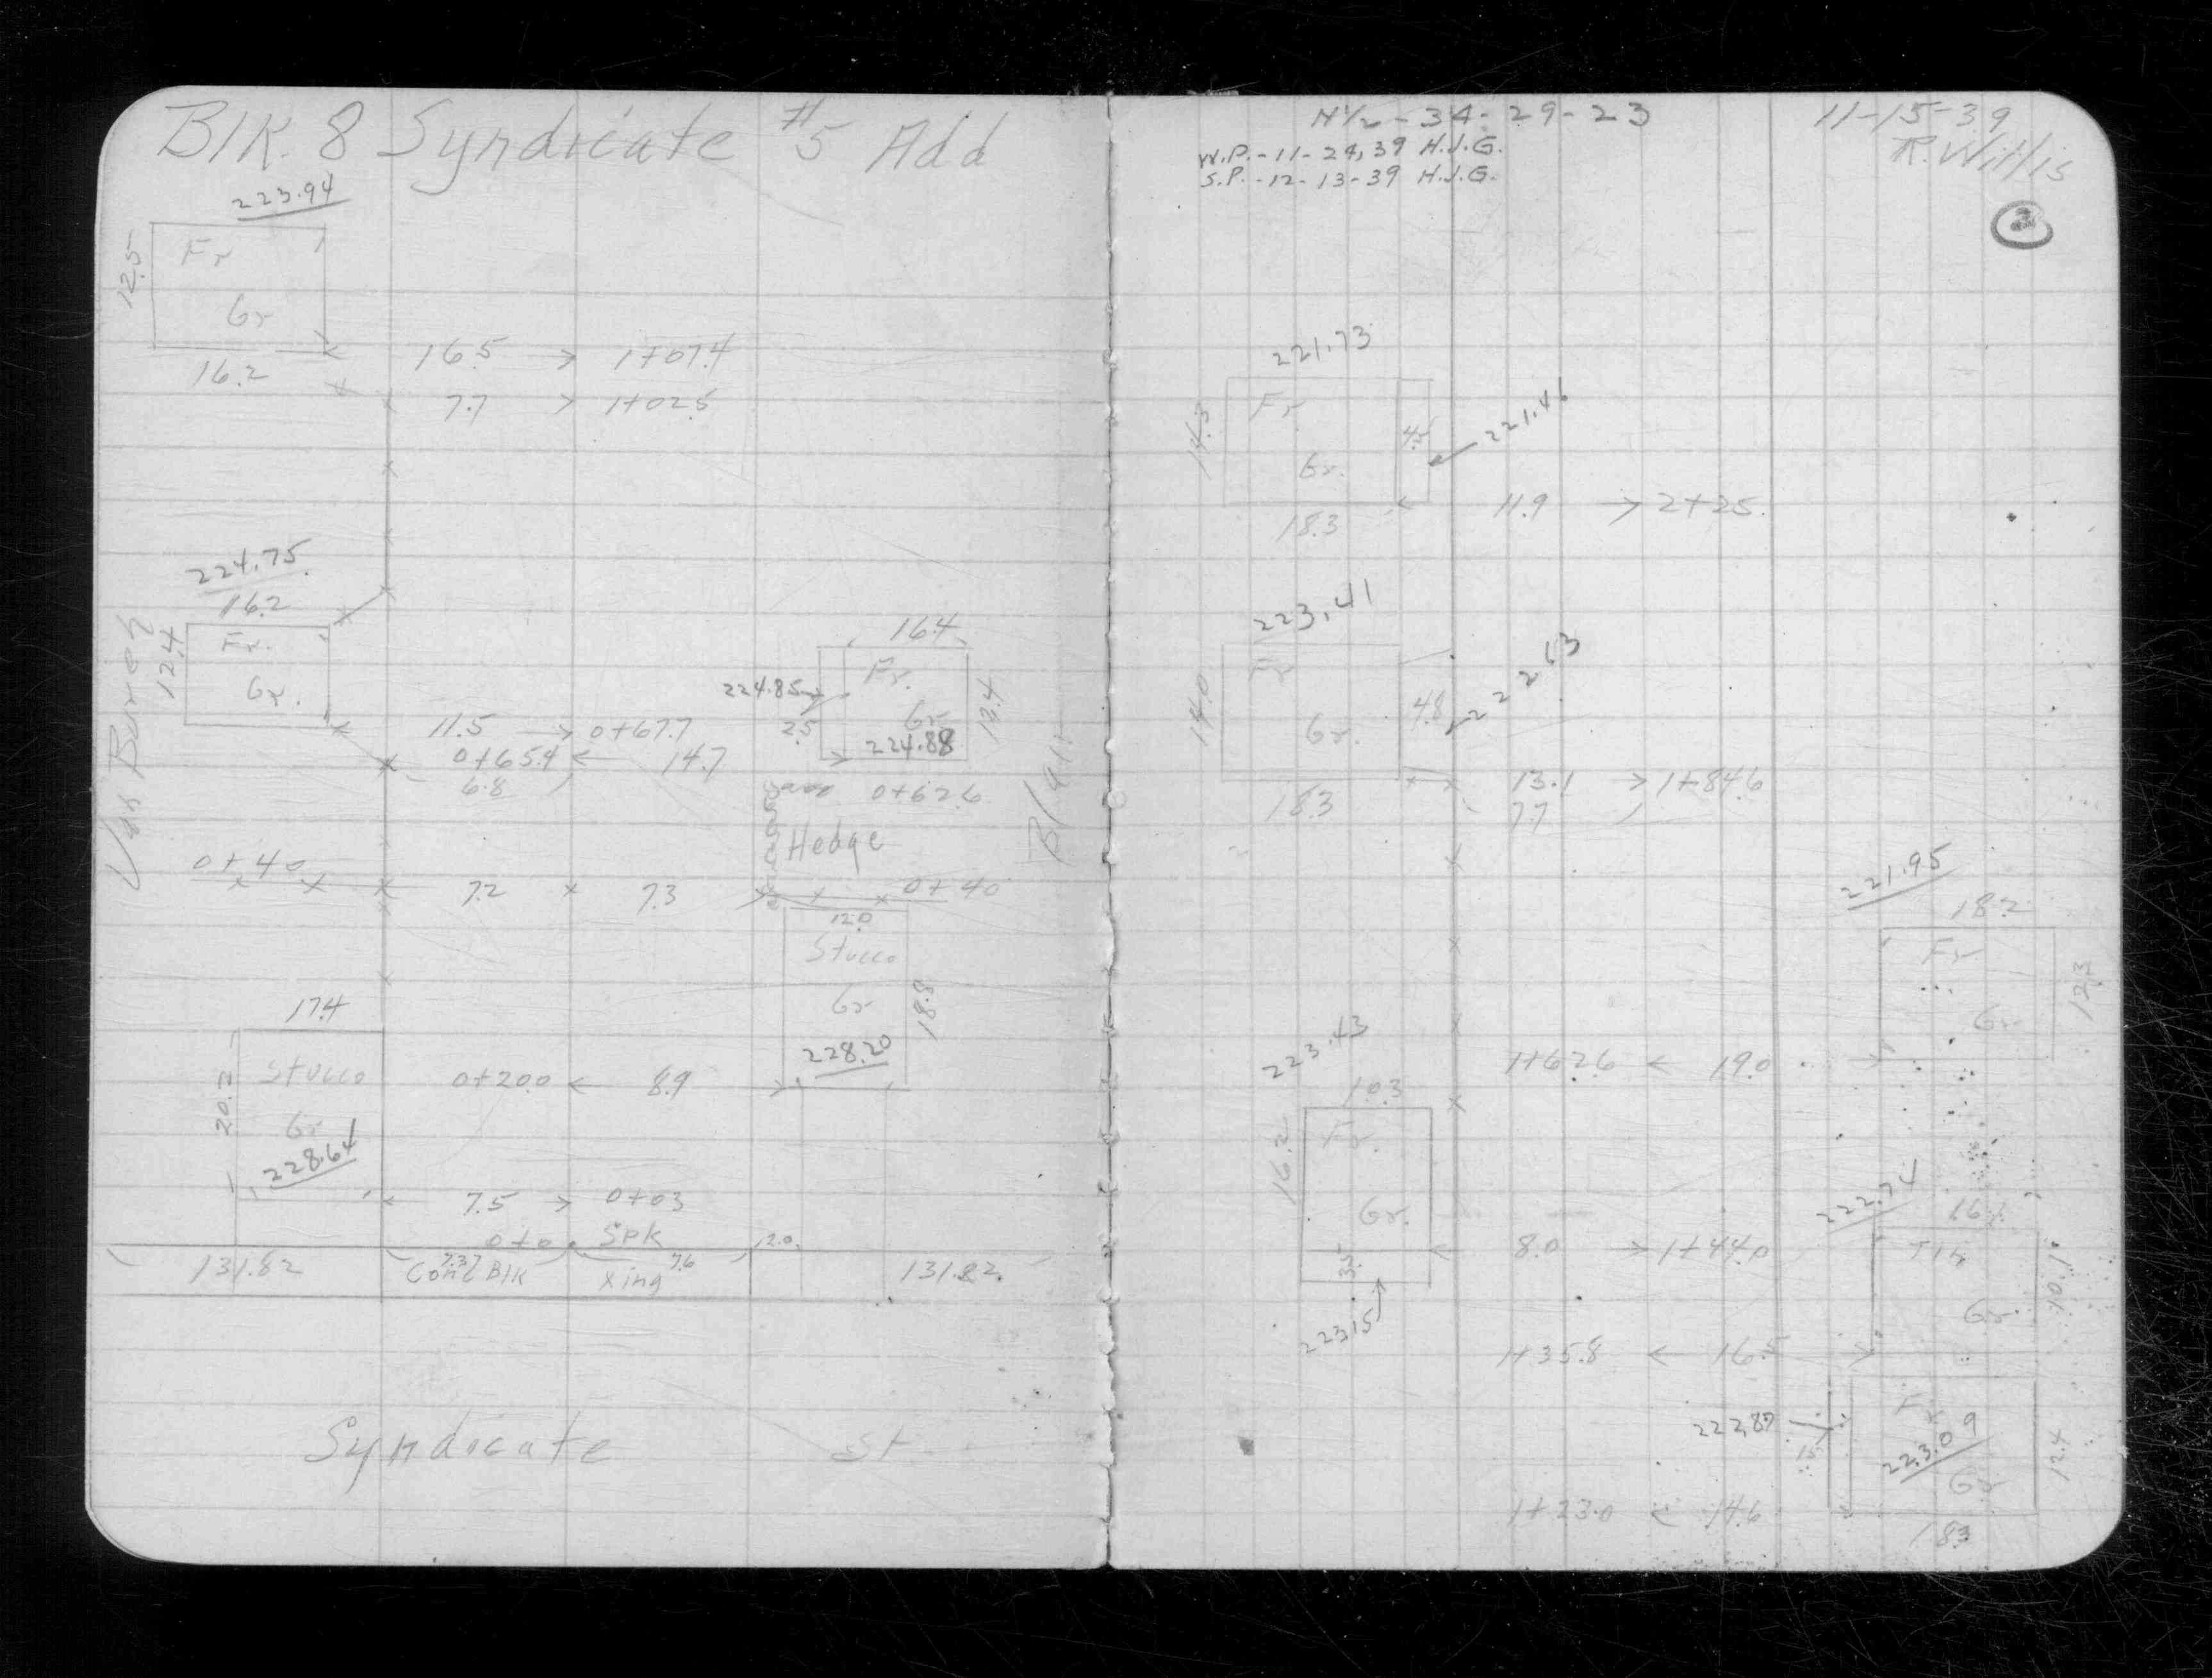 Blk. 8 Syndicate #5 Add
223.94
12.5
Fr
Gr
16.2
16.5 → 1+07.4
7.7 > 1+02.5
224.75
16.2
12.4
Fr.
Gr.
Van Buren
16.4
224.85
Fr.
Gr
13.4
2.5
224.88
11.5 → 0+67.7
0+65.9 ← 14.7
6.8
0+62.6
Hedge
Blair
0+40
7.2 × 7.3
0+40
12.0
Stucco
Gr
18.8
228.20
17.4
20.2
Stucco
Gr
228.64
0+20.0 ← 8.9 →
7.5 > 0+03
0+0 Spk
2.0
131.82
7.37
Conc Blk
7.6
Xing
131.82
Syndicate St
N½-34-29-23
11-15-39
W.P.-11-24,39 H.J.G.
R. Willis
S.P.-12-13-39 H.J.G.
221.73
14.3
Fr.
Gr.
4.5
221.46
18.3
11.9 → 2+25.
223.41
14.0
Fr
Gr.
4.8
222.63
18.3
13.1 → 1+84.6
7.7
221.95
18.2
Fr
Gr
12.3
1+62.6 ← 19.0 →
223.43
10.3
16.2
Fr.
Gr.
3.5
223.15
8.0 → 1+44.0
222.74
Tin
Gr.
10.1
1+35.8 ← 16.5 →
222.87
1.5
Fr
223.09
Gr
12.4
1+23.0 ← 14.6
18.3